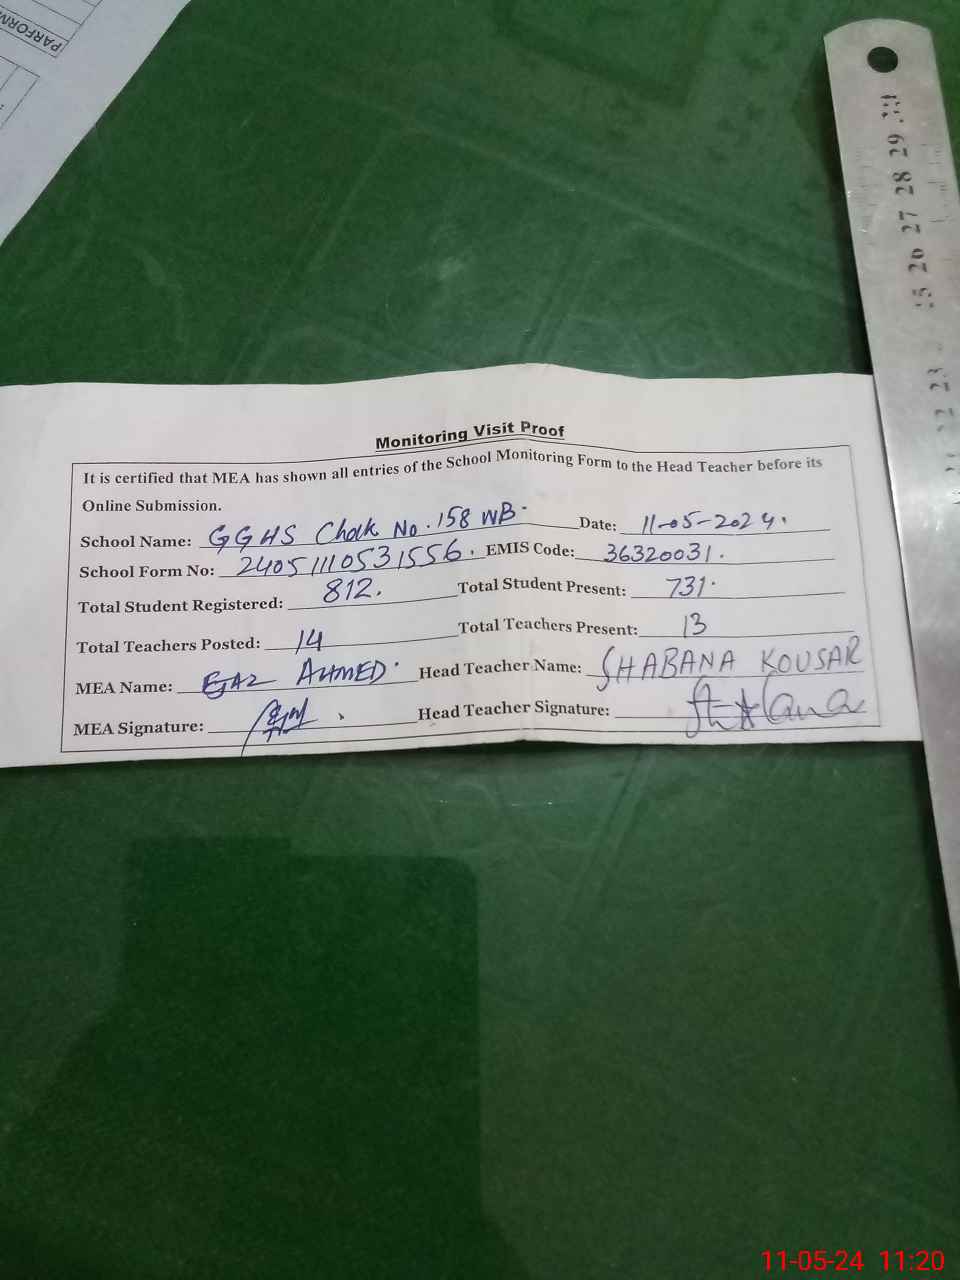 PARFORM
Monitoring Visit Proof
It is certified that MEA has shown all entries of the School Monitoring Form to the Head Teacher before its
Online Submission.
School Name: GGHS Chak No. 158 WB. Date: 11-05-2024.
School Form No: 24051110531556. EMIS Code: 36320031.
Total Student Registered: 812. Total Student Present: 731.
Total Teachers Posted: 14 Total Teachers Present: 13
MEA Name: EJAZ AHMED. Head Teacher Name: SHABANA KOUSAR
MEA Signature: Head Teacher Signature:
30 29 28 27 26 25 23 22
11-05-24 11:20